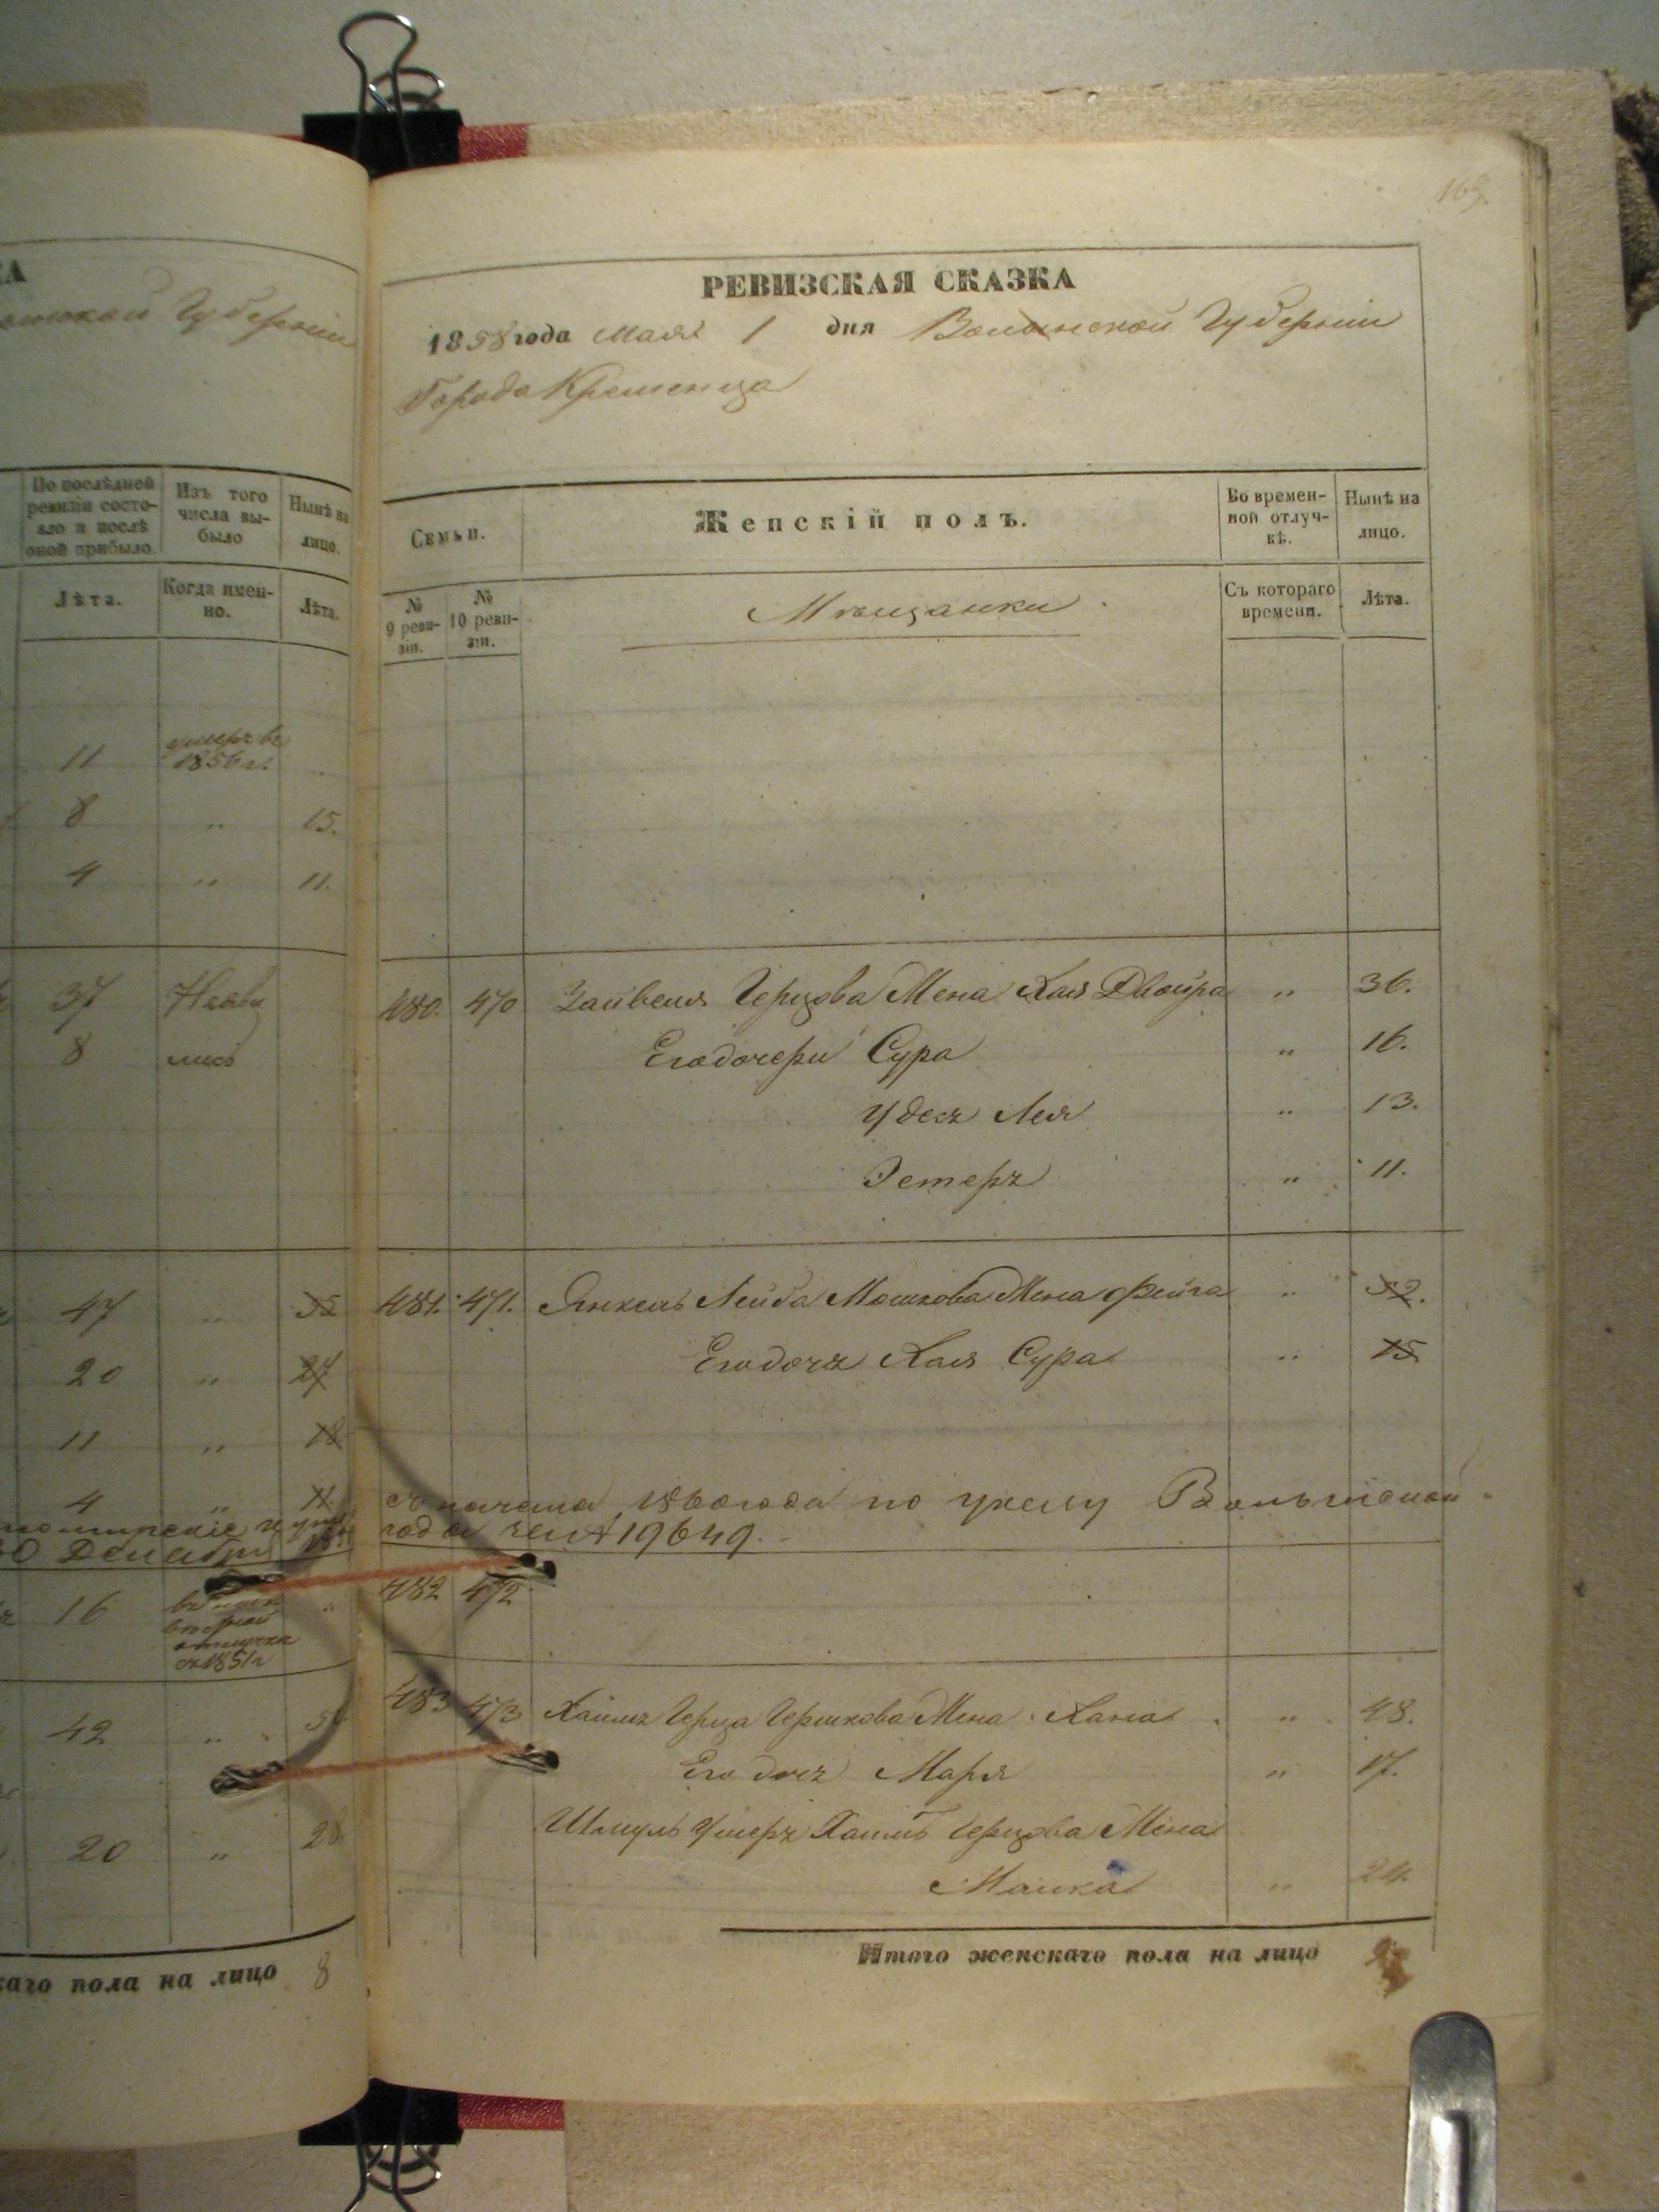 КА
Губерніи
По послѣдней ревизіи состо-
яло и послѣ
оной прибыло.
Изъ того
числа вы-
было
Нынѣ на
лицо.
Лѣта.
Когда имен-
но.
Лѣта.
11 умеръ въ
1856 г.
8 " 15.
4 " 11.
37 Неяви
8 лись
47 " 55
20 " 27
11 " 18
4 " 11
30 Декабря
16
отлучкѣ
съ 1851 г
42 "
20 " 28
каго пола на лицо 8
169
РЕВИЗСКАЯ СКАЗКА
1858 года Мая 1 дня Волынской Губерніи
Города Кременца
Семьи.
Женскій полъ.
Во времен-
ной отлуч-
кѣ.
Нынѣ на
лицо.
№
9 реви-
зіи.
№
10 реви-
зіи.
Мѣщанки
Съ котораго
времени.
Лѣта.
480. 470 Зайвеля Герцова Жена Хая Двойра " 36.
Его дочери Сура " 16.
Удесъ Лея " 13.
Эстеръ " 11.
481. 471. Янкель Лейба Мошкова Жена Фейга " 52.
Его дочь Хая Сура " 15
съ начала 1860 года по указу Волынской
года за № 19649.
482 472
483 473 Хаимъ Герца Гершкова Жена Хана " 48.
Его дочь Марья " 17.
Шмуль Ушеръ Хаимъ Герцова Жена
Малка " 24.
Итого женскаго пола на лицо